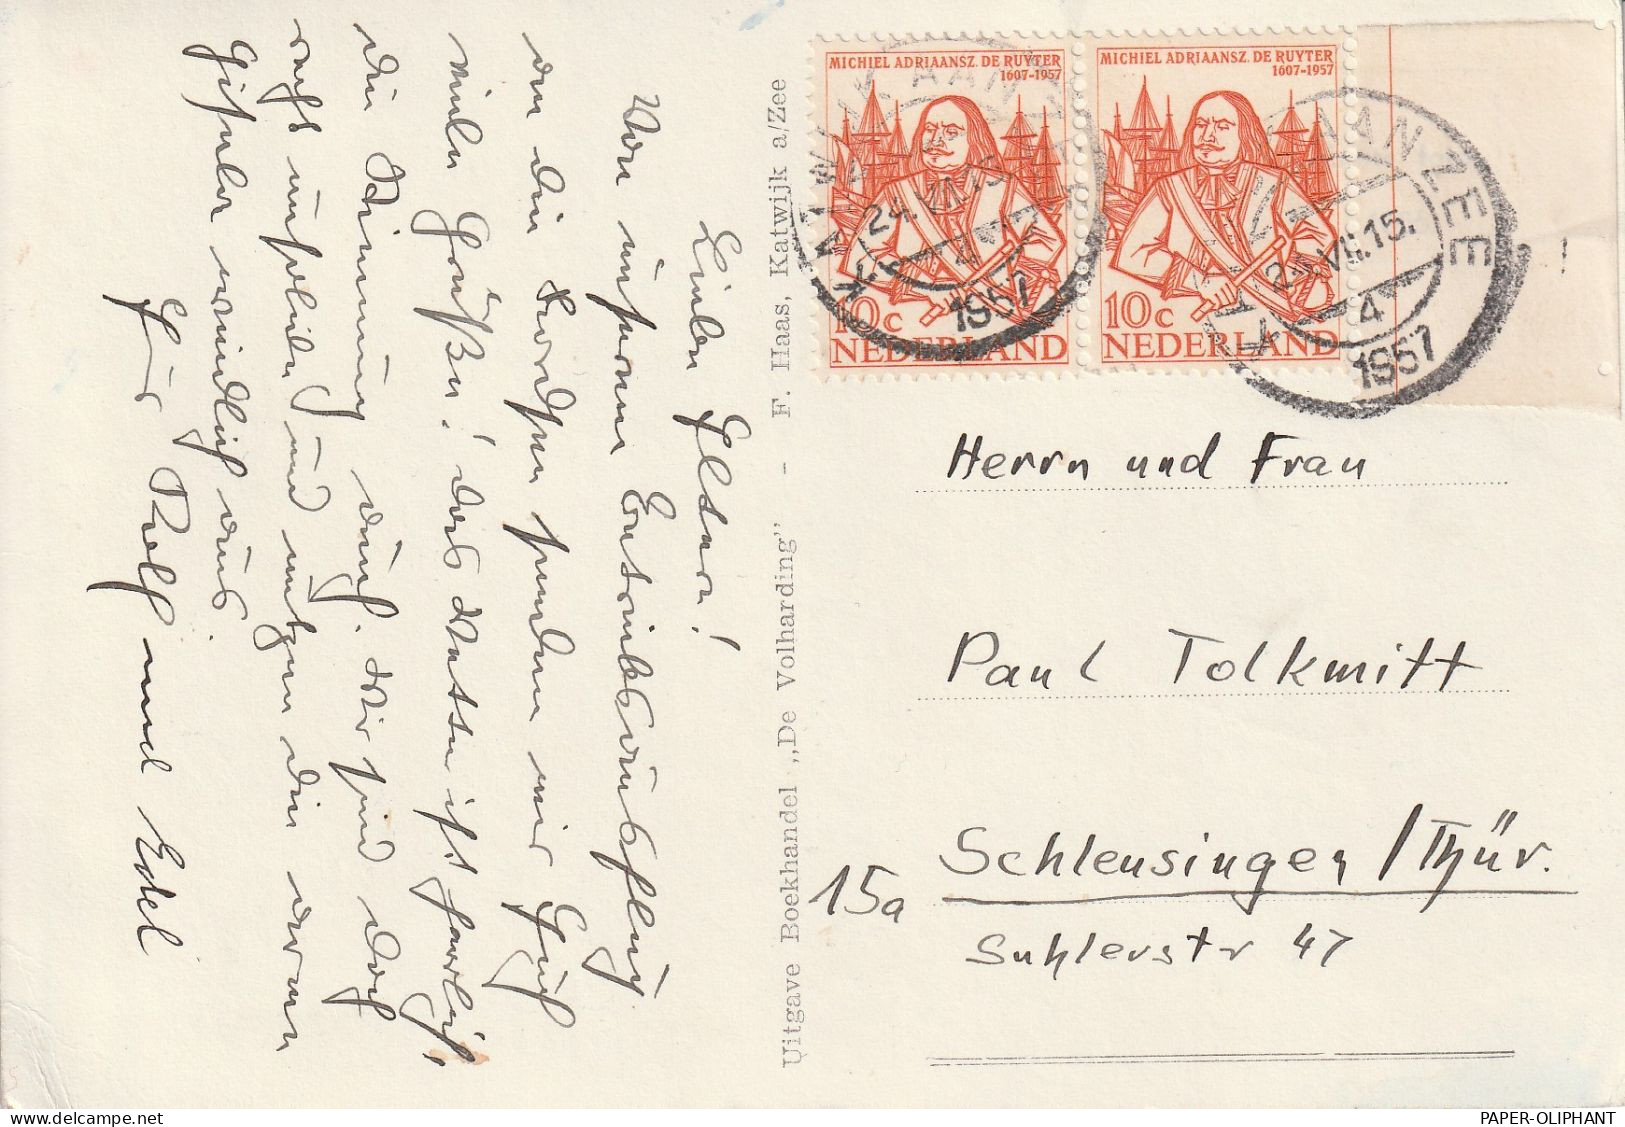 Lieben Eltern!
Von unserem Betriebsausflug
an die Nordsee senden wir Euch
viele Grüße! das Wetter ist herrlich,
die Stimmung auch. Wir sind doch
recht unsolide und nutzen die
Gisela mündlich aus.
Eure Rolf und Edel
Uitgave Boekhandel „De Volharding” - F. Haas, Katwijk a/Zee
MICHIEL ADRIAANSZ. DE RUYTER
1607-1957
10c
NEDERLAND
MICHIEL ADRIAANSZ. DE RUYTER
1607-1957
10c
NEDERLAND
KATWIJK AAN ZEE
24.VII
4
1957
AAN ZEE
24.VII.15.
4
1957
Herrn und Frau
Paul Tolkmitt
15a
Schleusingen / Thür.
Suhlerstr 47
PAPER-OLIPHANT